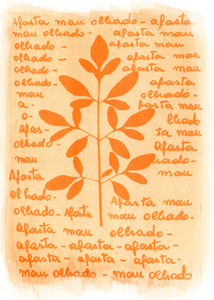 Afasta mau olhado - afasta
mau olhado - afasta mau
olhado - afasta - afasta
mau olhado - afasta mau
mau olhado
a- afasta mau
o olhado
Afas- ta mau
olhado- afasta
mau olhado-
Afasta mau mau
olhado afasta mau
olhado- Afasta mau olhado
Afasta mau olhado -
afasta - afasta - afasta-
- afasta - afasta - afasta -
mau olhado - mau olhado